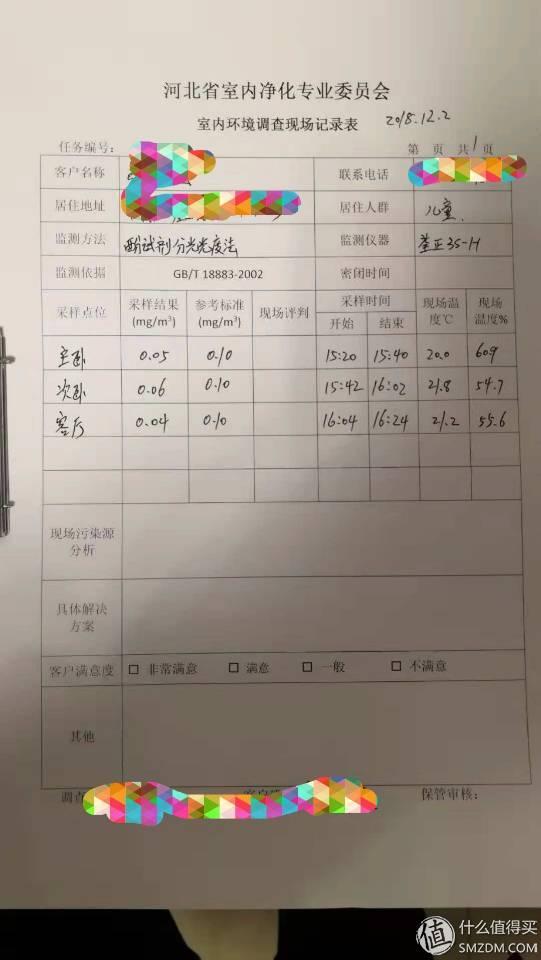 河北省室内净化专业委员会
室内环境调查现场记录表 2018.12.2
任务编号: 第 页 共1页
客户名称 联系电话
居住地址 居住人群 儿童.
监测方法 酚试剂分光光度法 监测仪器 3S-H
监测依据 GB/T 18883-2002 密闭时间
采样点位 采样结果 (mg/m³) 参考标准 (mg/m³) 现场评判 采样时间 开始 结束 现场温度℃ 现场湿度%
主卧 0.05 0.10 15:20 15:40 20.0 60.9
次卧 0.06 0.10 15:42 16:02 21.8 54.7
客厅 0.04 0.10 16:04 16:24 21.2 55.6
现场污染源分析
具体解决方案
客户满意度 □ 非常满意 □ 满意 □ 一般 □ 不满意
其他
保管审核:
值 什么值得买
SMZDM.COM